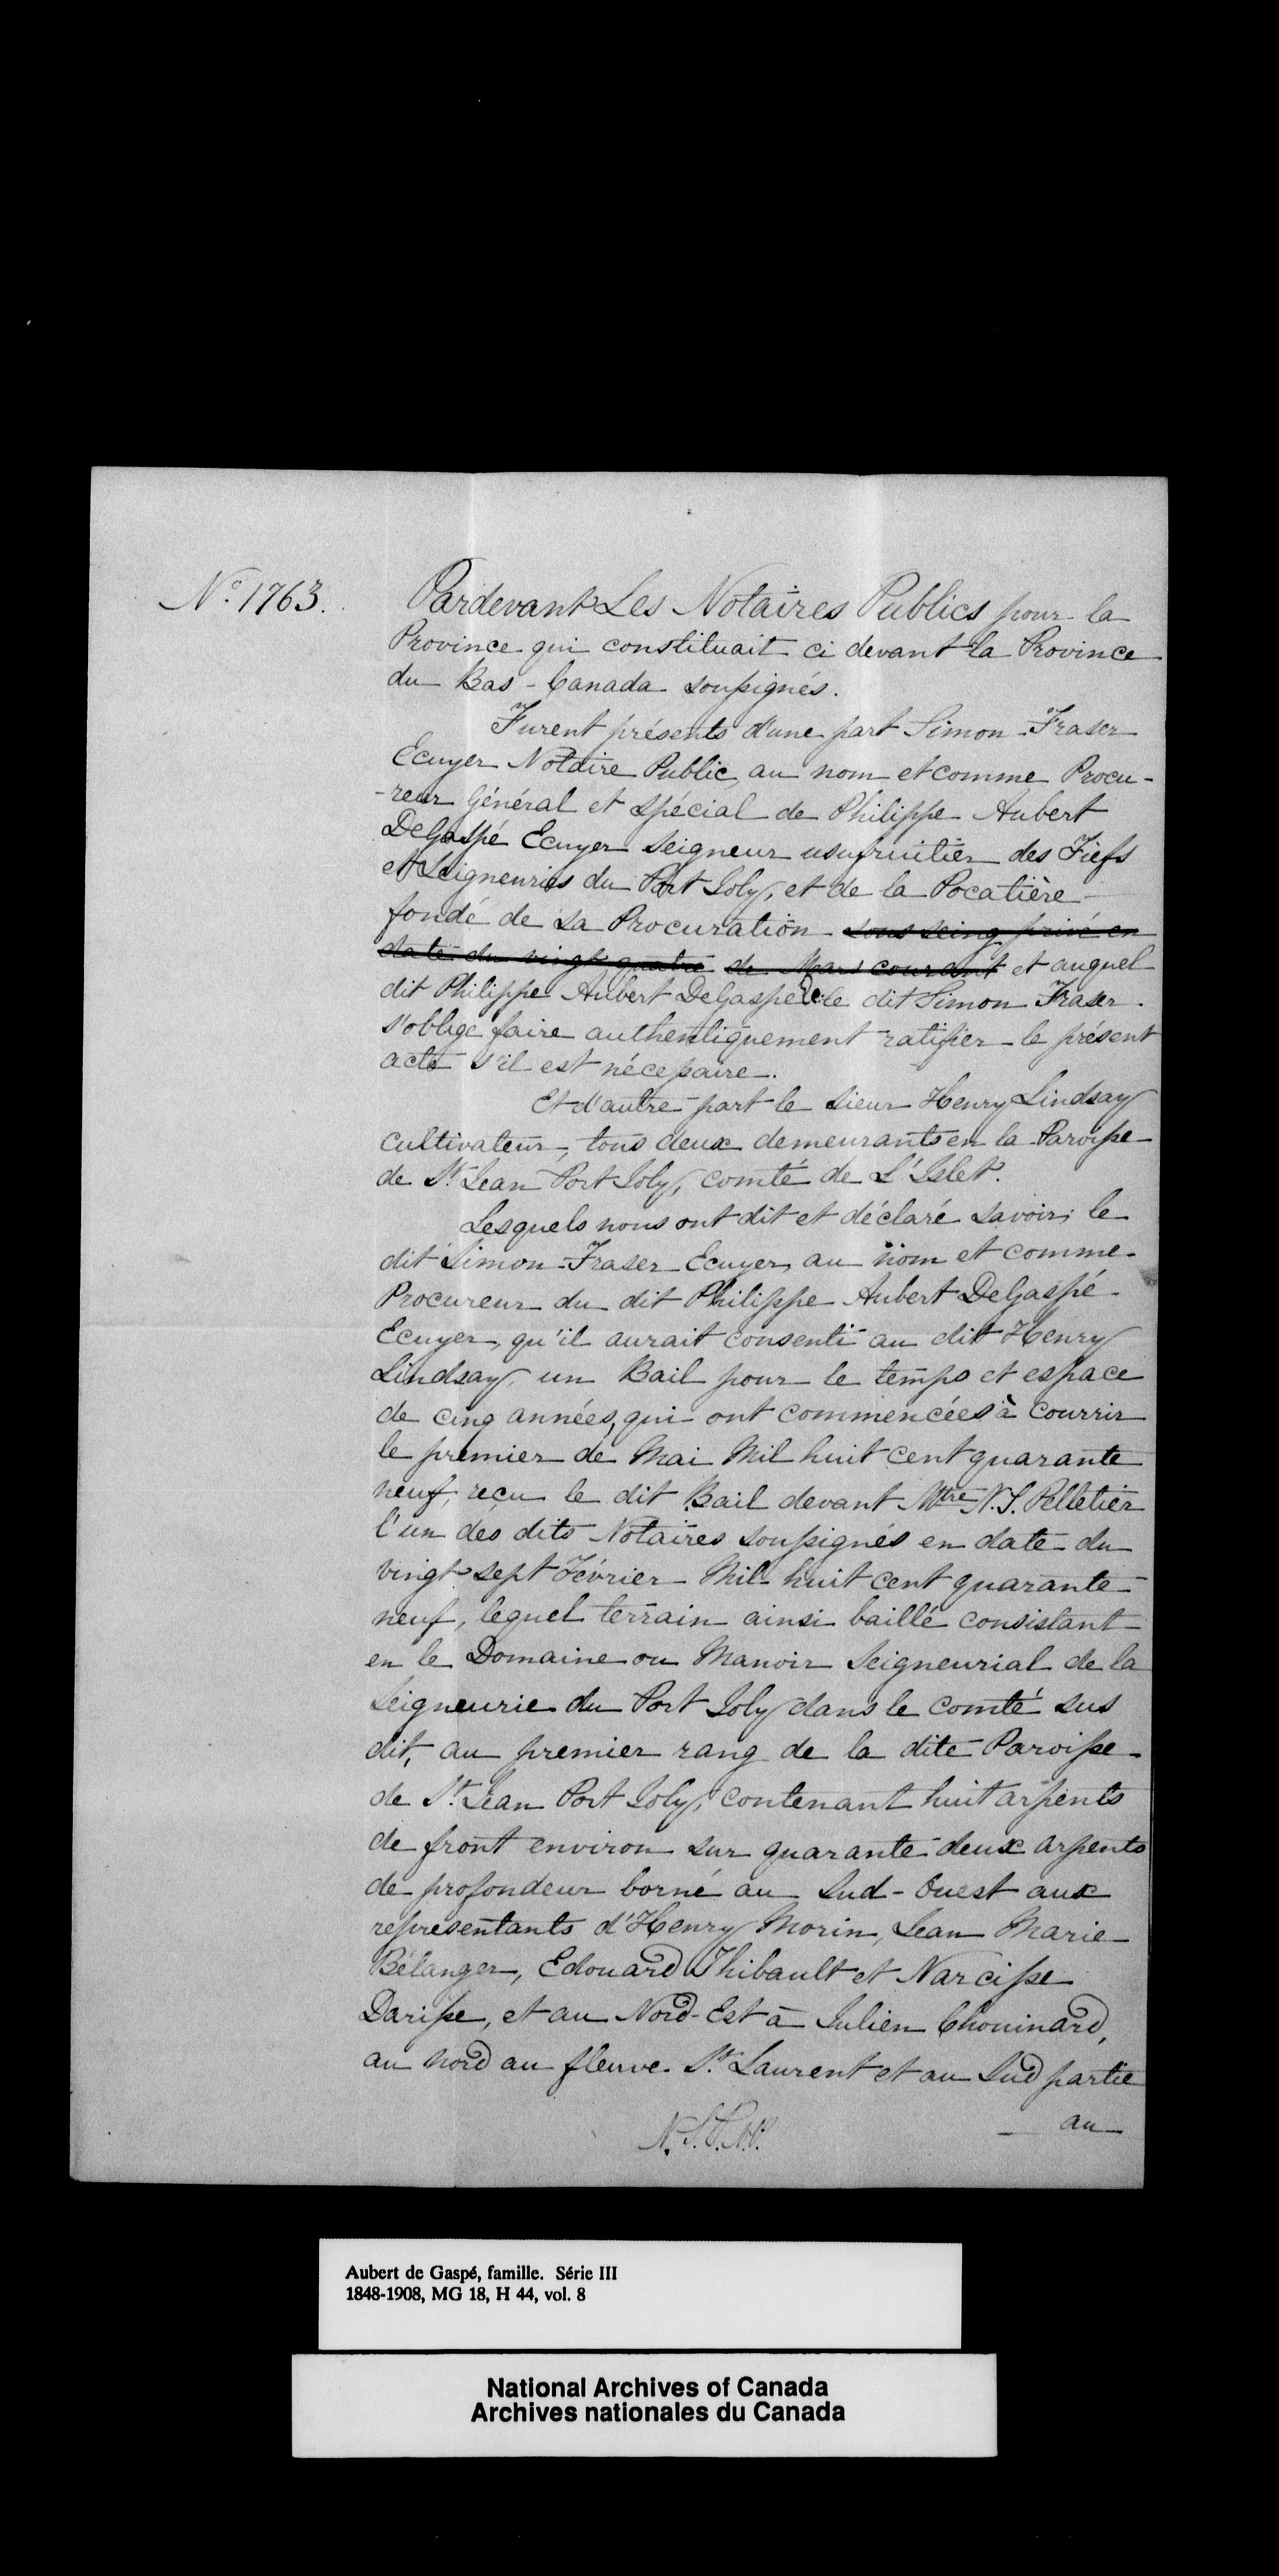 No. 1763.
Pardevant Les Notaires Publics pour la
Province qui constituait ci devant la Province
du Bas-Canada soussignés.
Furent présents d'une part Simon Fraser
Ecuyer Notaire Public, au nom et comme Procu-
-reur Général et spécial de Philippe Aubert
DeGaspé Ecuyer Seigneur usufruitier des Fiefs
et Seigneuries du Port Joly, et de la Pocatière
fondé de sa Procuration sous seing privé en
date du vingt quatre de Mars courant et auquel
dit Philippe Aubert DeGaspé le dit Simon Fraser
s'oblige faire authentiquement ratifier le présent
acte s'il est nécessaire.
Et d'autre part le Sieur Henry Lindsay
Cultivateur, tous deux demeurants en la Paroisse
de St. Jean Port Joly, comté de L'Islet.
Lesquels nous ont dit et déclaré savoir; le
dit Simon Fraser Ecuyer, au nom et comme
Procureur du dit Philippe Aubert DeGaspé
Ecuyer, qu'il aurait consenti au dit Henry
Lindsay, un Bail pour le temps et espace
de cinq années, qui ont commencées à courrir
le premier de Mai Mil huit cent quarante
neuf, reçu le dit Bail devant Mtre N. S. Pelletier
l'un des dits Notaires soussignés en date du
vingt sept Février Mil huit cent quarante
neuf, lequel terrain ainsi baillé consistant
en le Domaine ou Manoir Seigneurial de la
Seigneurie du Port Joly dans le comté sus
dit, au premier rang de la dite Paroisse
de St. Jean Port Joly, contenant huit arpents
de front environ sur quarante deux arpents
de profondeur borné au Sud-Ouest aux
représentants d'Henry Morin, Jean Marie
Bélanger, Edouard Thibault et Narcisse
Darisse, et au Nord-Est à Julien Chouinard,
au nord au fleuve St. Laurent et au Sud partie
au
N.S.P. N.P.
Aubert de Gaspé, famille. Série III
1848-1908, MG 18, H 44, vol. 8
National Archives of Canada
Archives nationales du Canada